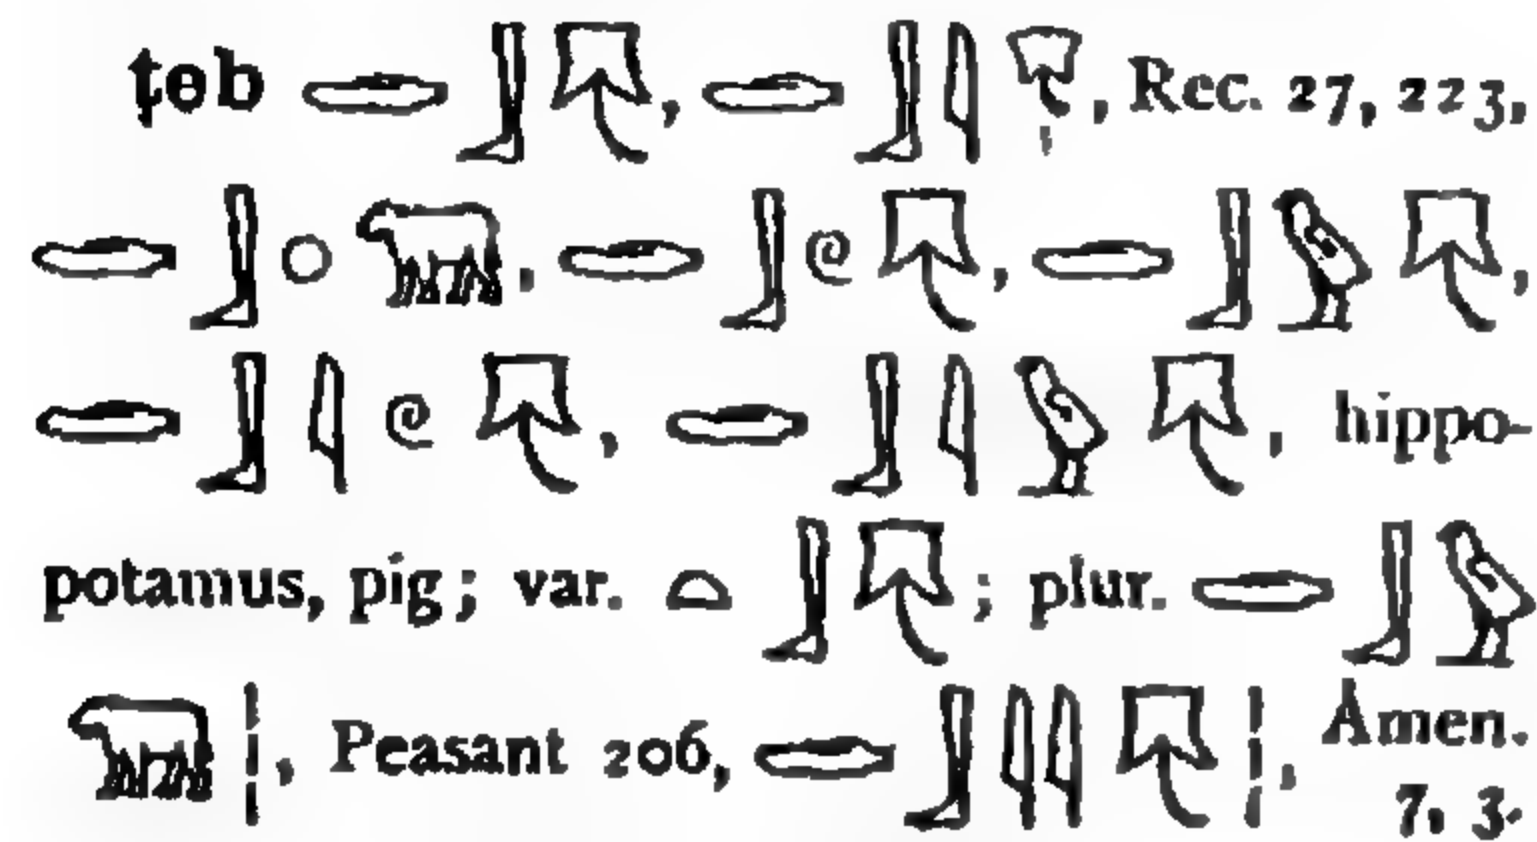 ṭeb 𓂧𓃀𓄛, 𓂧𓃀𓇋𓄛𓏤, Rec. 27, 223,
𓂧𓃀𓈒𓃯, 𓂧𓃀𓏲𓄛, 𓂧𓃀𓅱𓄛,
𓂧𓃀𓇋𓏲𓄛, 𓂧𓃀𓇋𓅱𓄛, hippo-
potamus, pig; var. 𓏏𓃀𓄛; plur. 𓂧𓃀𓅱
𓃯𓏪, Peasant 206, 𓂧𓃀𓇋𓇋𓄛𓏪, Ȧmen.
7, 3.